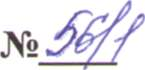 № 56/1